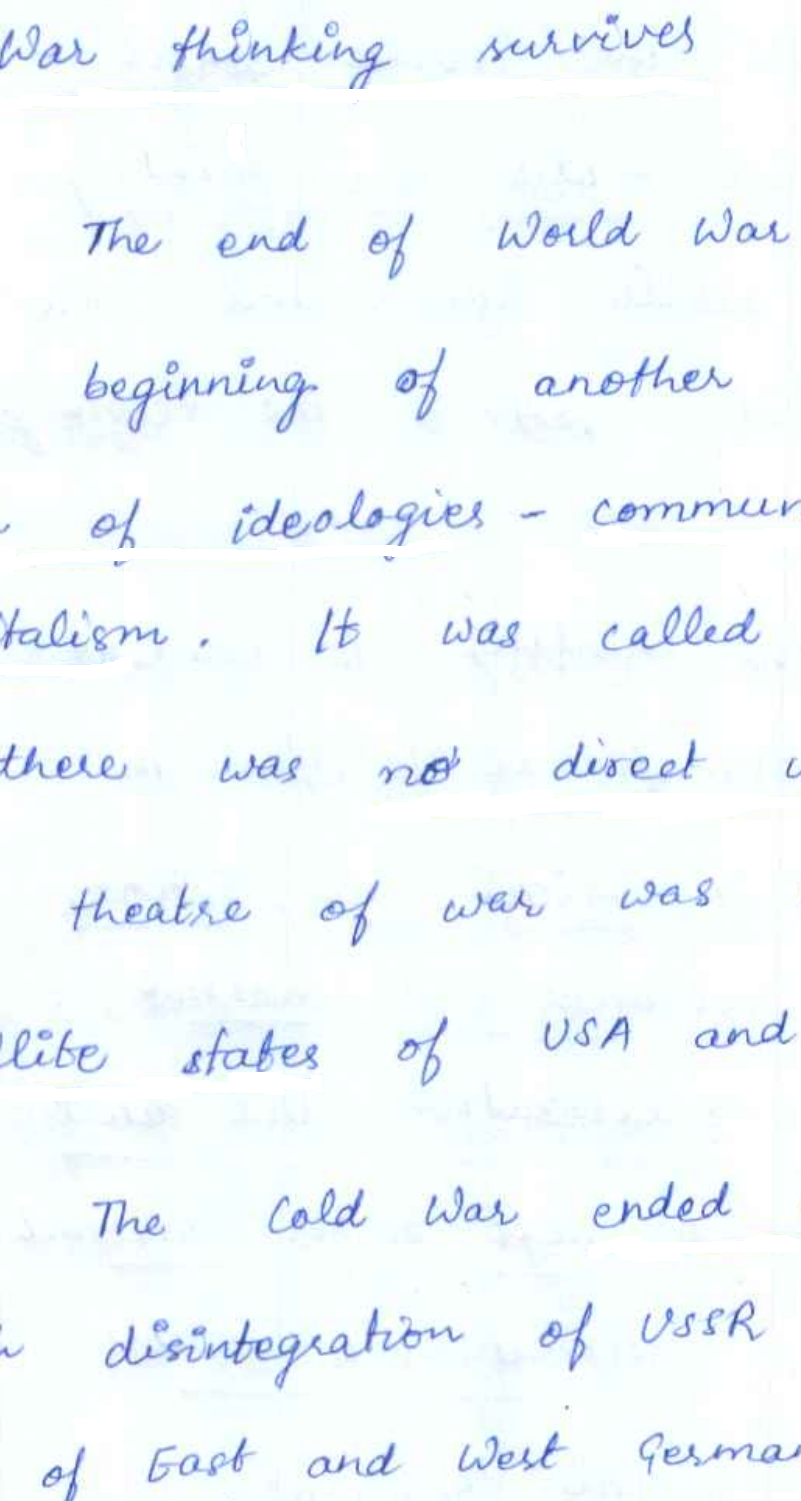 War thinking survives
The end of World War
beginning of another
of ideologies - commun
talism. It was called
there was no direct
theatre of war was
llite states of USA and
The Cold War ended
disintegration of USSR
of East and West German